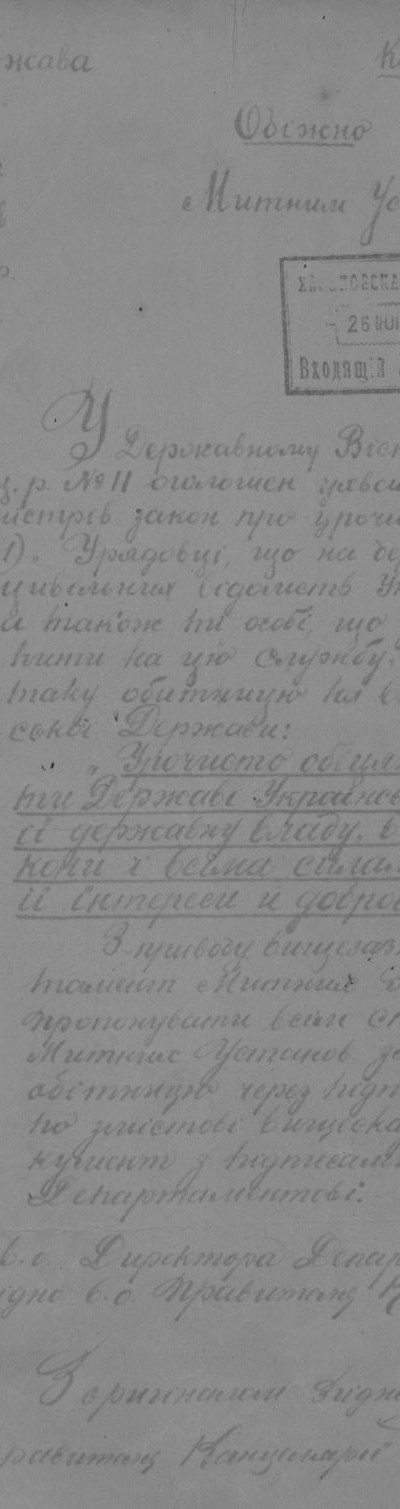 жава
Обіжно
Митним Ус
26
Входящій
У Державному Віс
ц. р. № 11 оголошен ухва
істрів закон про уроч
1). Урядовці, що на
цивільних відомств Ук
а також ті особі, що
пити на цю службу.
таку обітницю на в
ської Держави:
„Урочисто обіця
ти Державі Українс
її державну владу, в
кони і всіма силам
її інтереси й добро
З приводу вищезаз
тамент Митних
пропонувати всім
Митних Установ
обітницю через підп
по змістові вищеска
кумент з підписам
Департаментові.
в. о. Директора Депар
ідно в. о. Правитель К
З оригіналом згідн
равитель Канцелярії